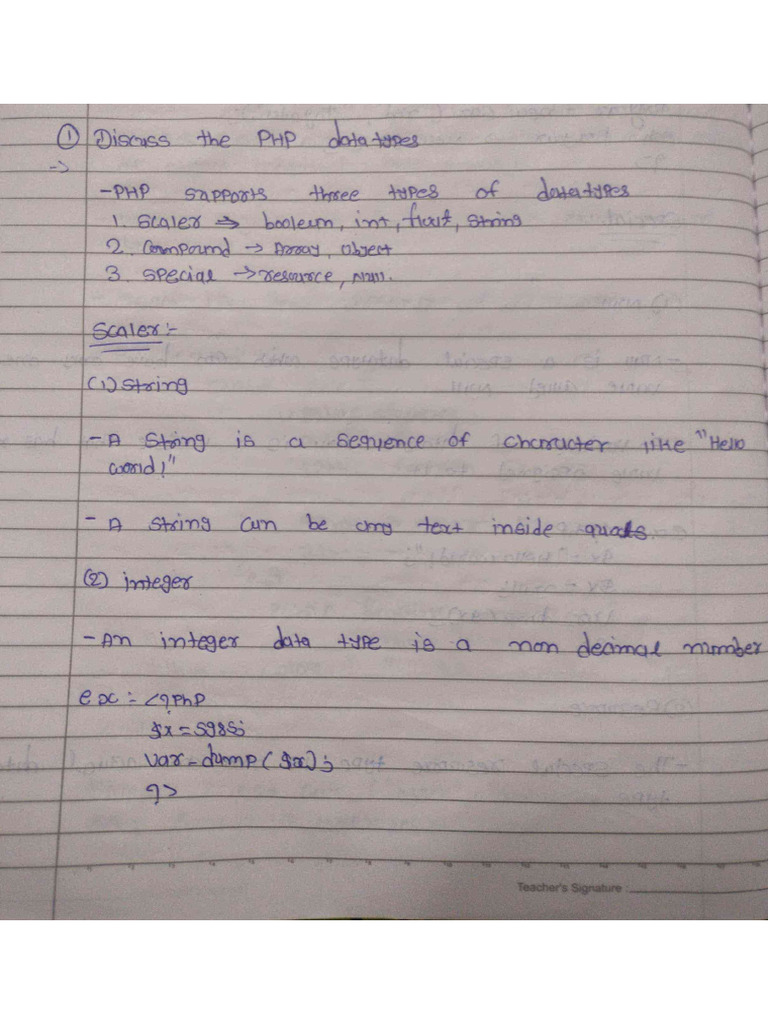 ① Discuss the PHP datatypes
->
-PHP supports three types of datatypes
1. Scaler => boolean, int, float, string
2. Compound -> Array, Object
3. Special -> resource, Null.
Scaler:-
(1) String
- A string is a sequence of character like "Hello
world!"
- A string can be any text inside quots.
(2) integer
- An integer data type is a non decimal number
ex:- <?PhP
$x = 5985;
var-dump ($x);
?>
Teacher's Signature :